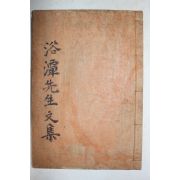 浴潭先生文集